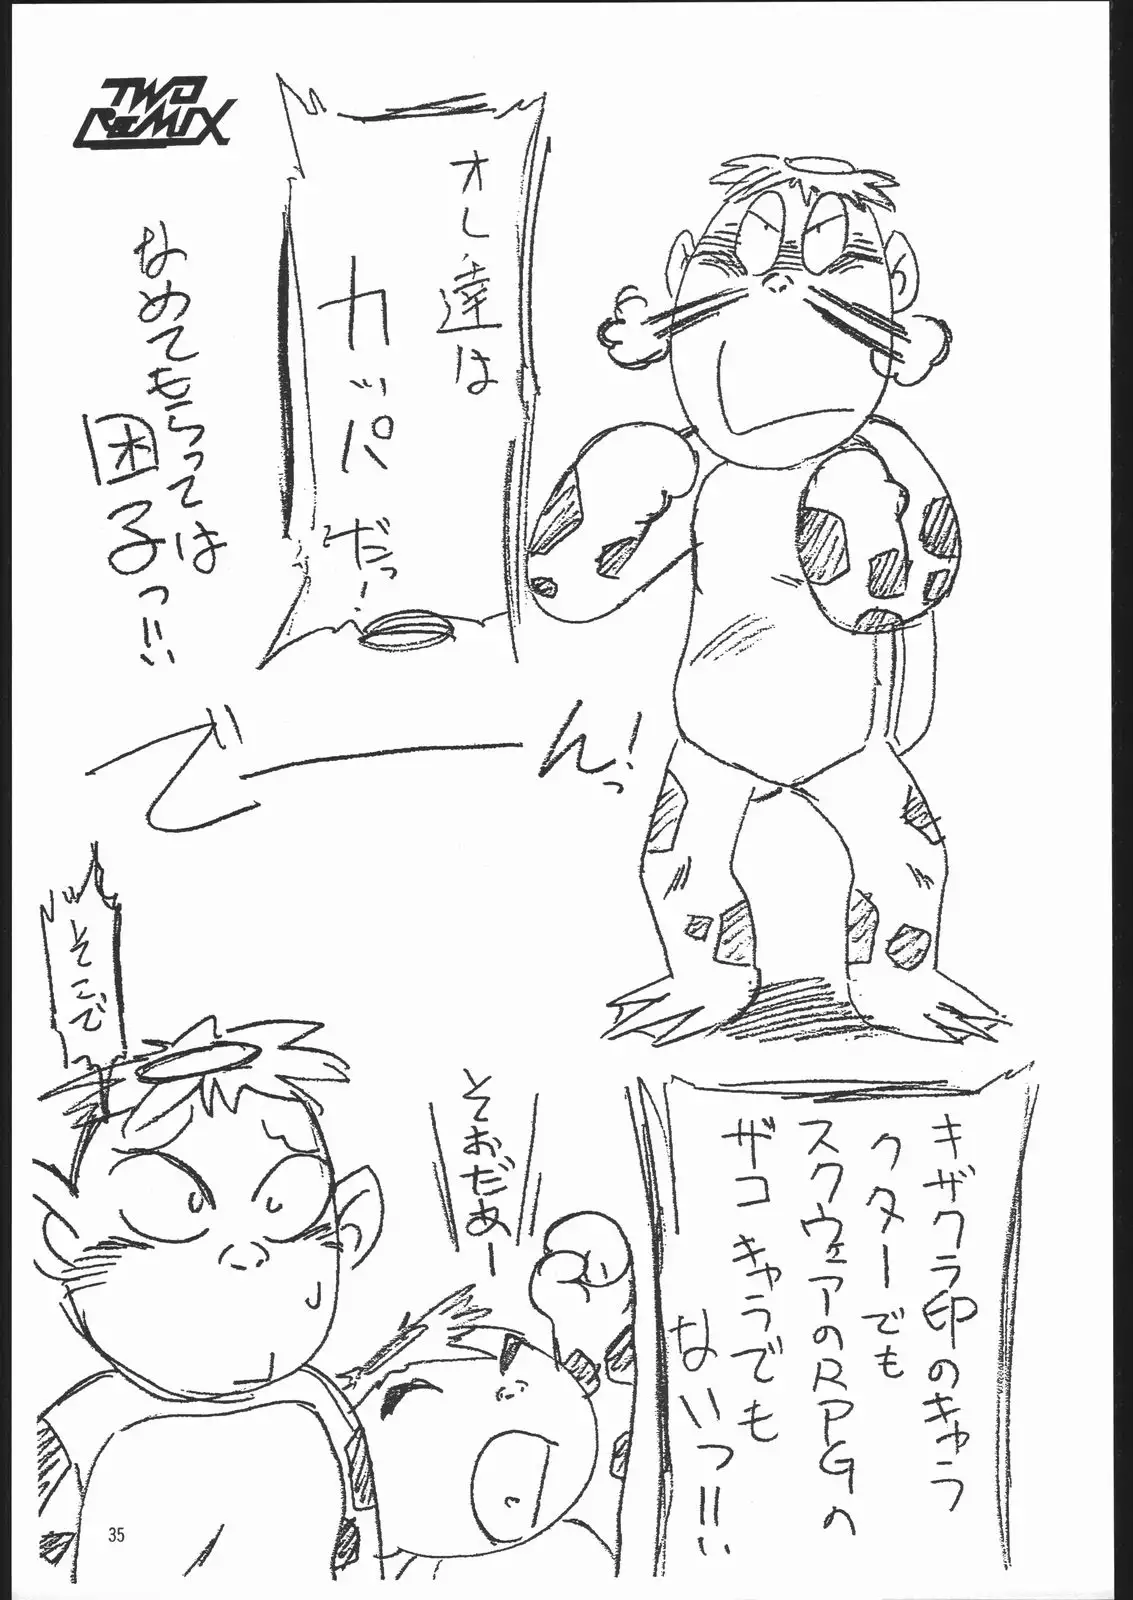 TWO
ReMIX
オレ達は
カッパだっ!
なめてもらっては
困子っ!!
で
ーん!っ
キザクラ印のキャラ
クターでも
スクウェアのRPGの
ザコキャラでも
ないっ!!
そこで
そおだぁー
35